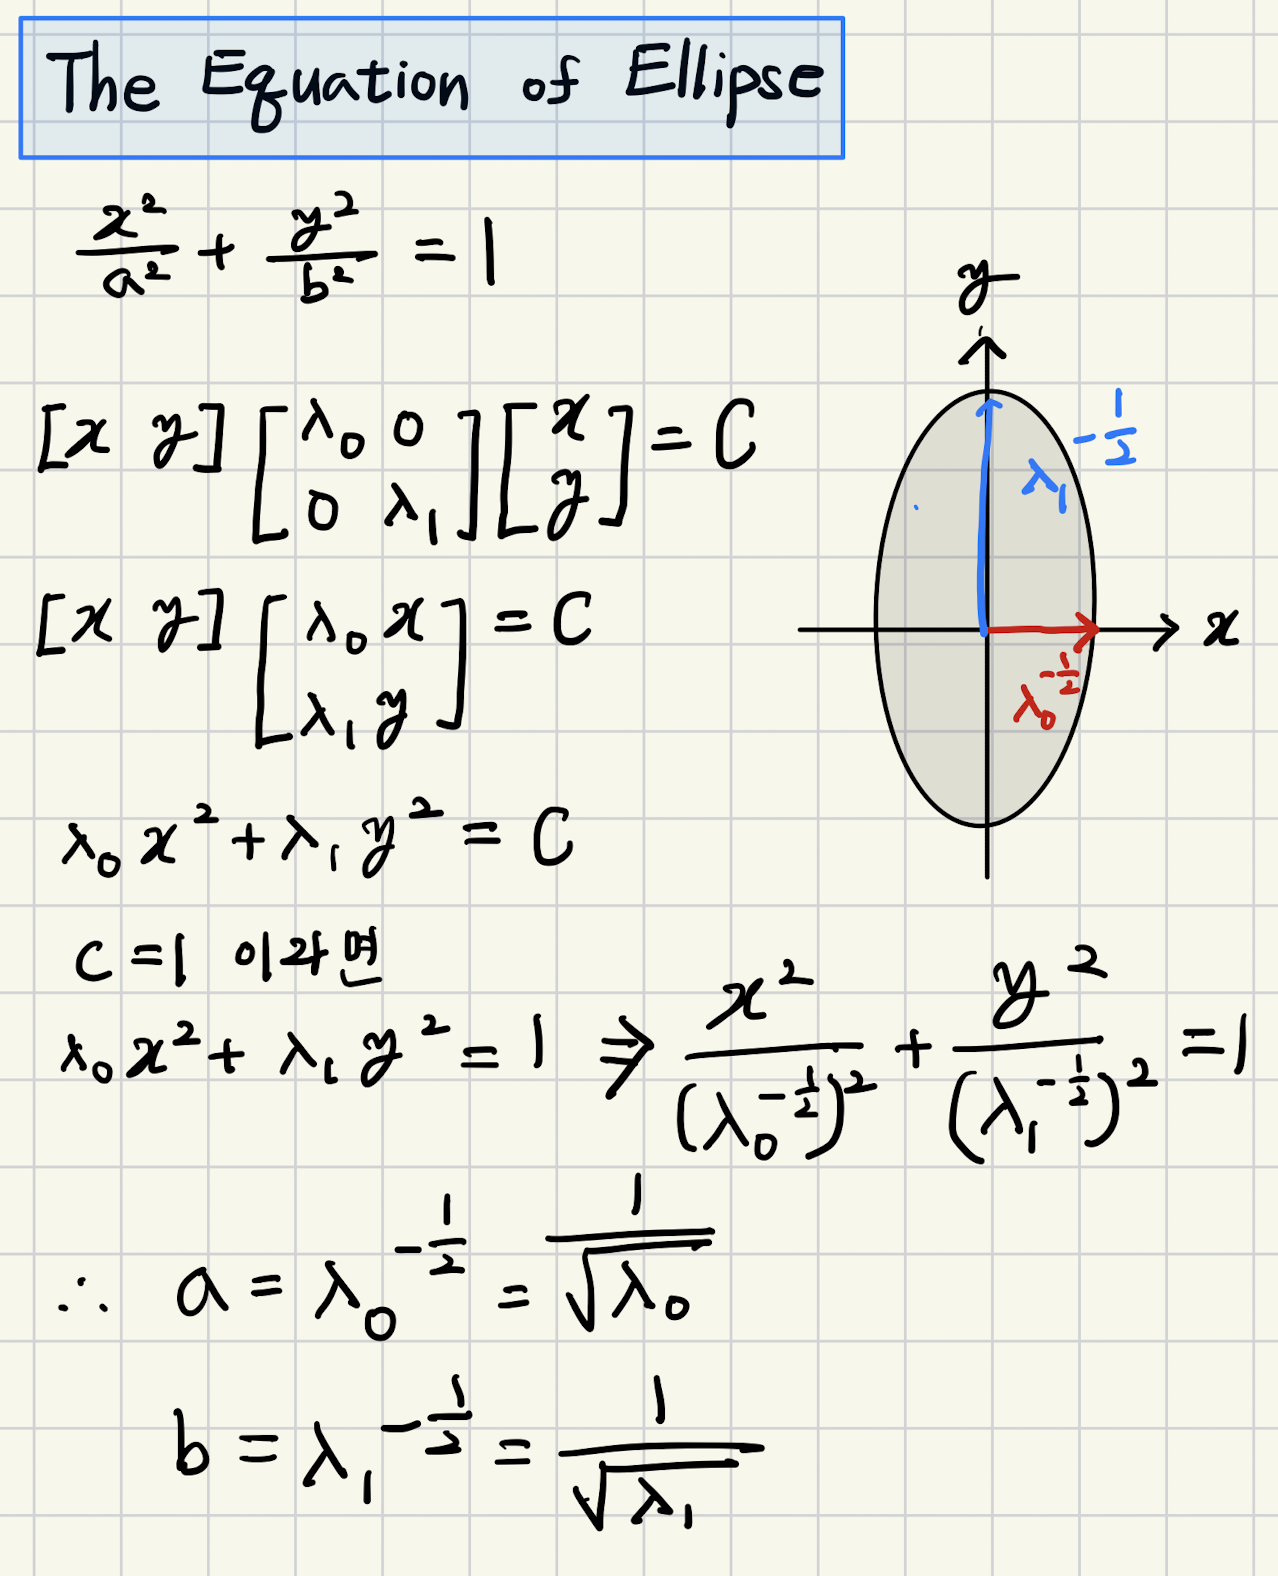 The Equation of Ellipse
x²/a² + y²/b² = 1
[x y] [λ₀ 0; 0 λ₁] [x; y] = C
[x y] [λ₀x; λ₁y] = C
λ₀x² + λ₁y² = C
C = 1 이라면
λ₀x² + λ₁y² = 1 ⇒ x²/(λ₀^(-1/2))² + y²/(λ₁^(-1/2))² = 1
∴ a = λ₀^(-1/2) = 1/√λ₀
b = λ₁^(-1/2) = 1/√λ₁
y
λ₁^(-1/2)
x
λ₀^(-1/2)